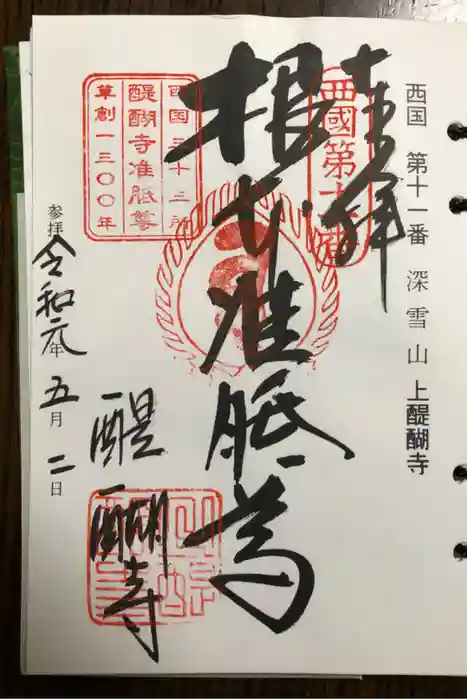 西国 第十一番 深雪山 上醍醐寺
奉拝
西國第十一番
根本准胝尊
西国三十三所
醍醐寺准胝尊
草創一三〇〇年
醍醐寺
参拝 令和元年 五月 二日